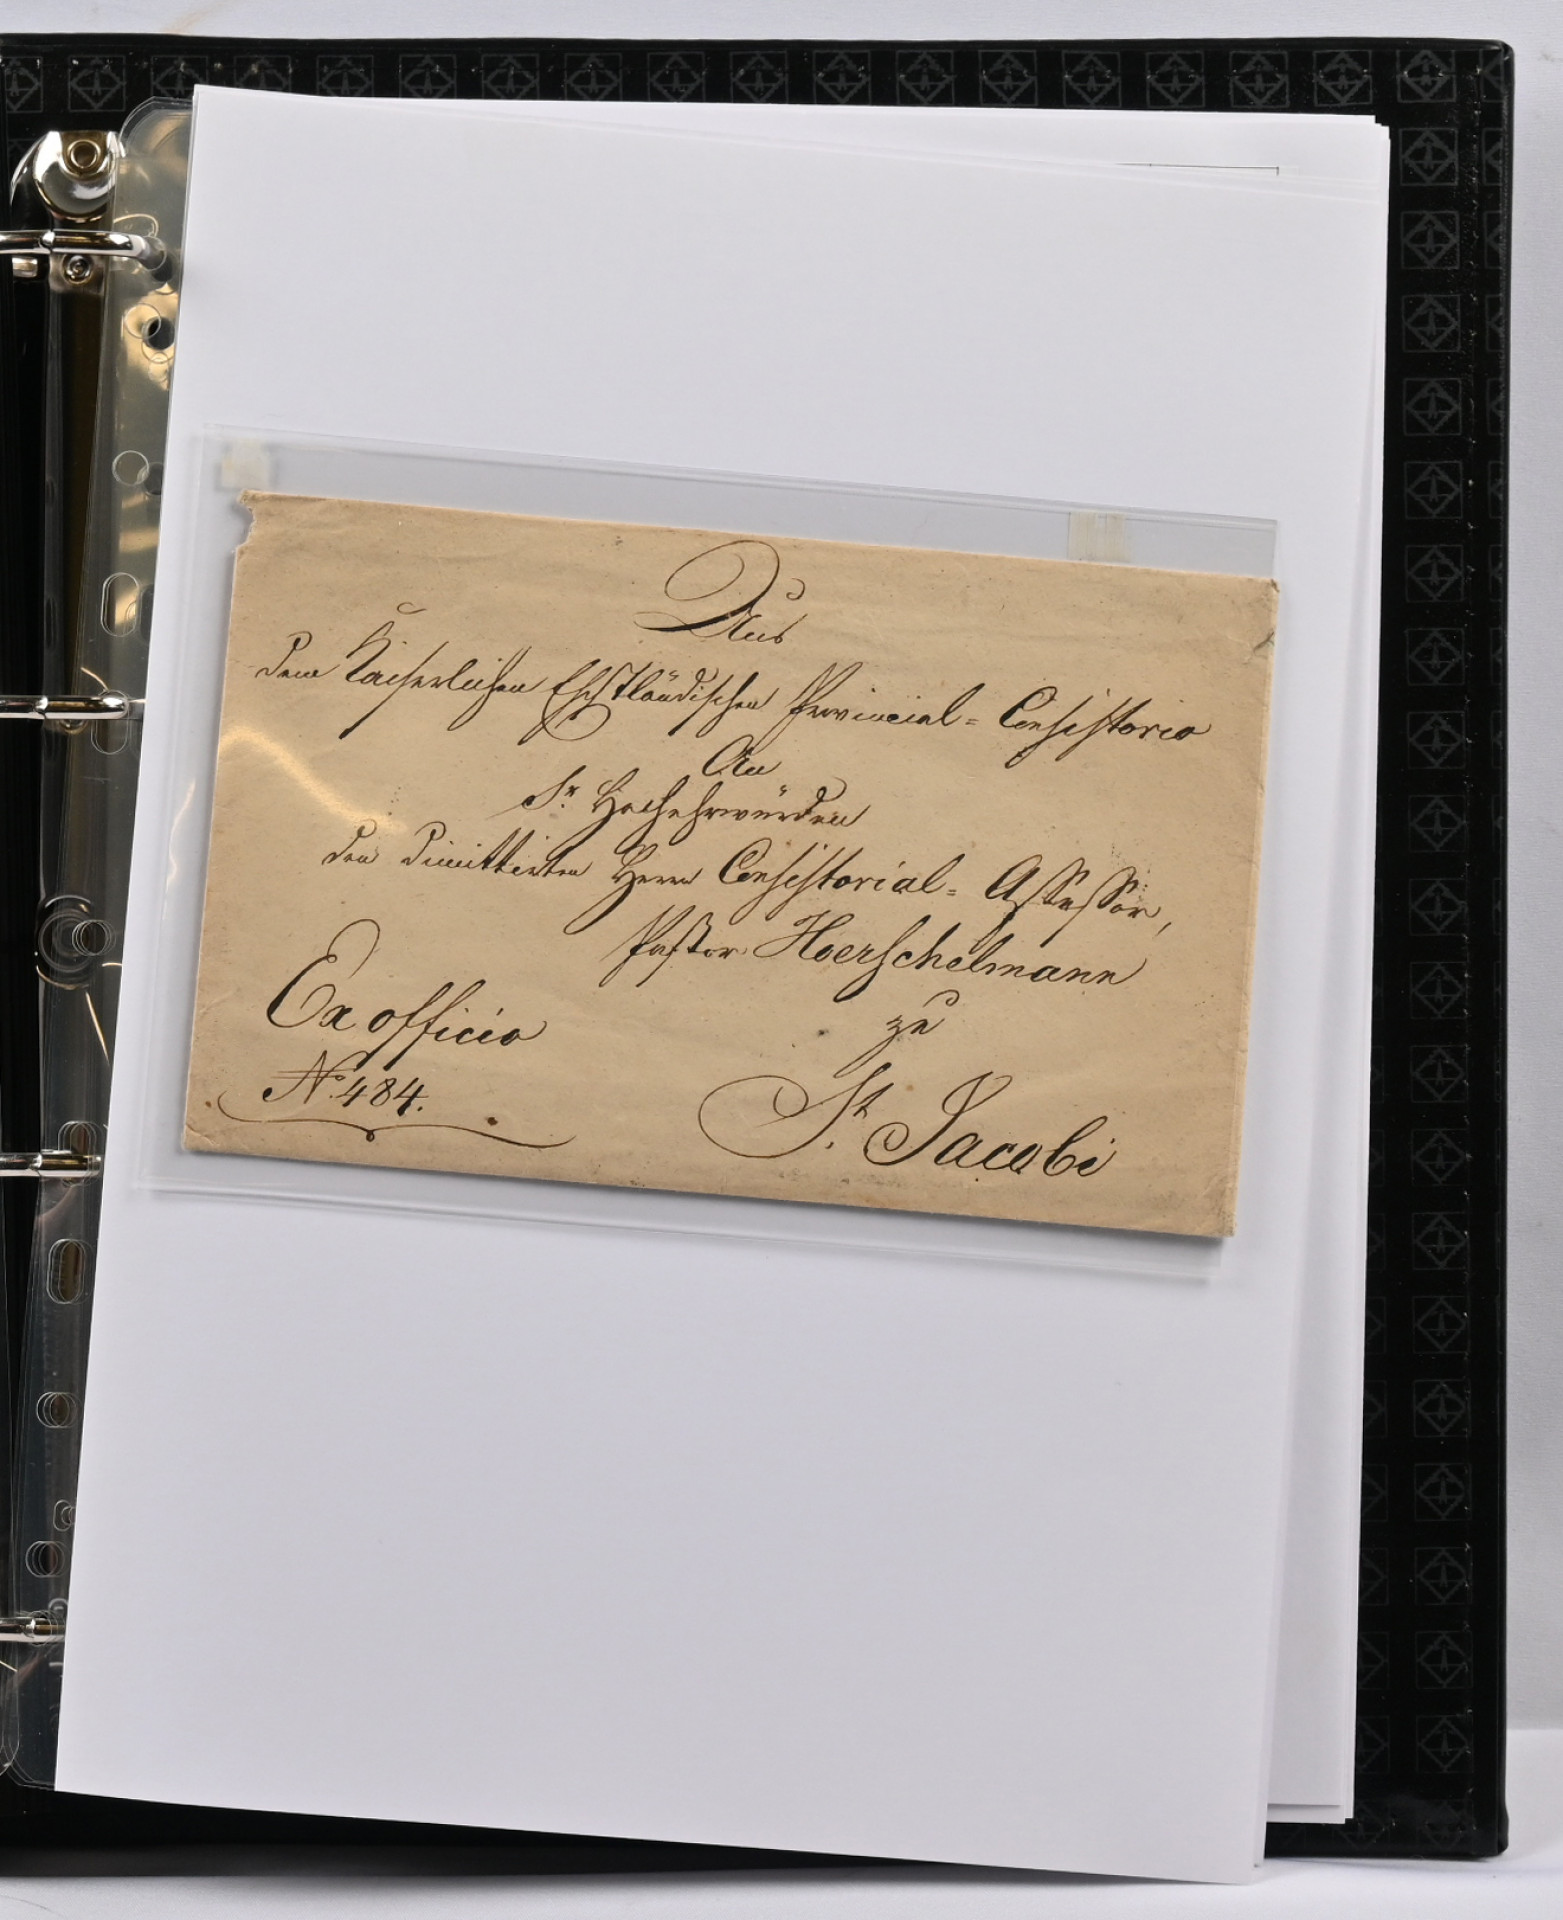 Aus
dem Kaiserlichen Ehstländischen Provincial = Consistorio
An
Sr. Hochehrwürden
den dimittirten Herrn Consistorial = Assessor,
Pastor Hoerschelmann
zu
St. Jacobi
Ex officio
No. 484.